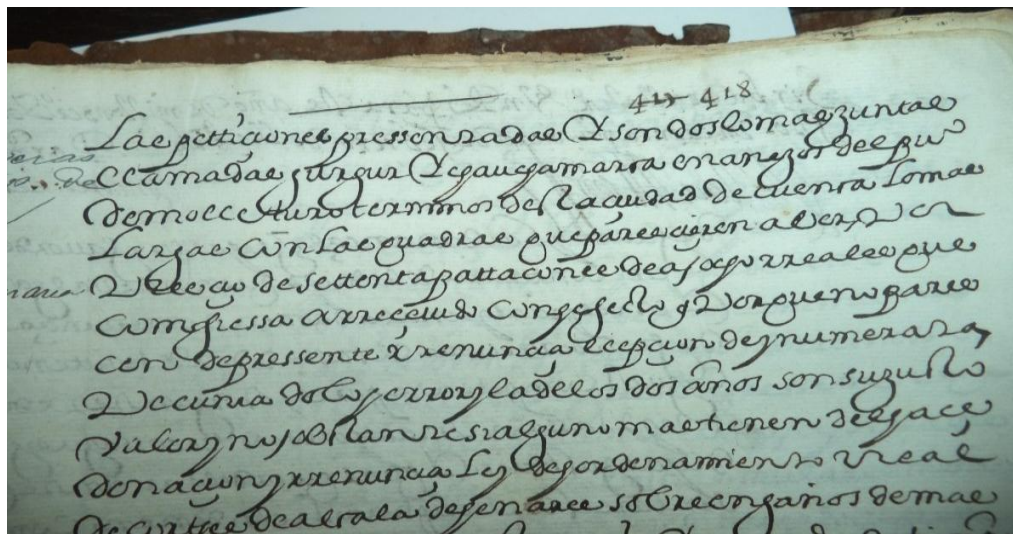 417 418
Las pettiçiones pressentadas Y son dos lomas juntas
llamadas
de molleturo terminos desta ciudad de cuenca lomas
largas con las quadras que pareçieren aber Por
Presçio de settenta pattacones de a ocho rreales que
confiessa arreceuido con efecto y Porque no pares
cen de pressente rrenunçia eecepçion de ynumerata
Pecunia dolo y error y la de los dos años son su justo
Valor y no obstante si alguno mas tienen de
donaçion y rrenunçia Ley del ordenamiento rreal
de cortes de alcala de henares sobre engaños de mas